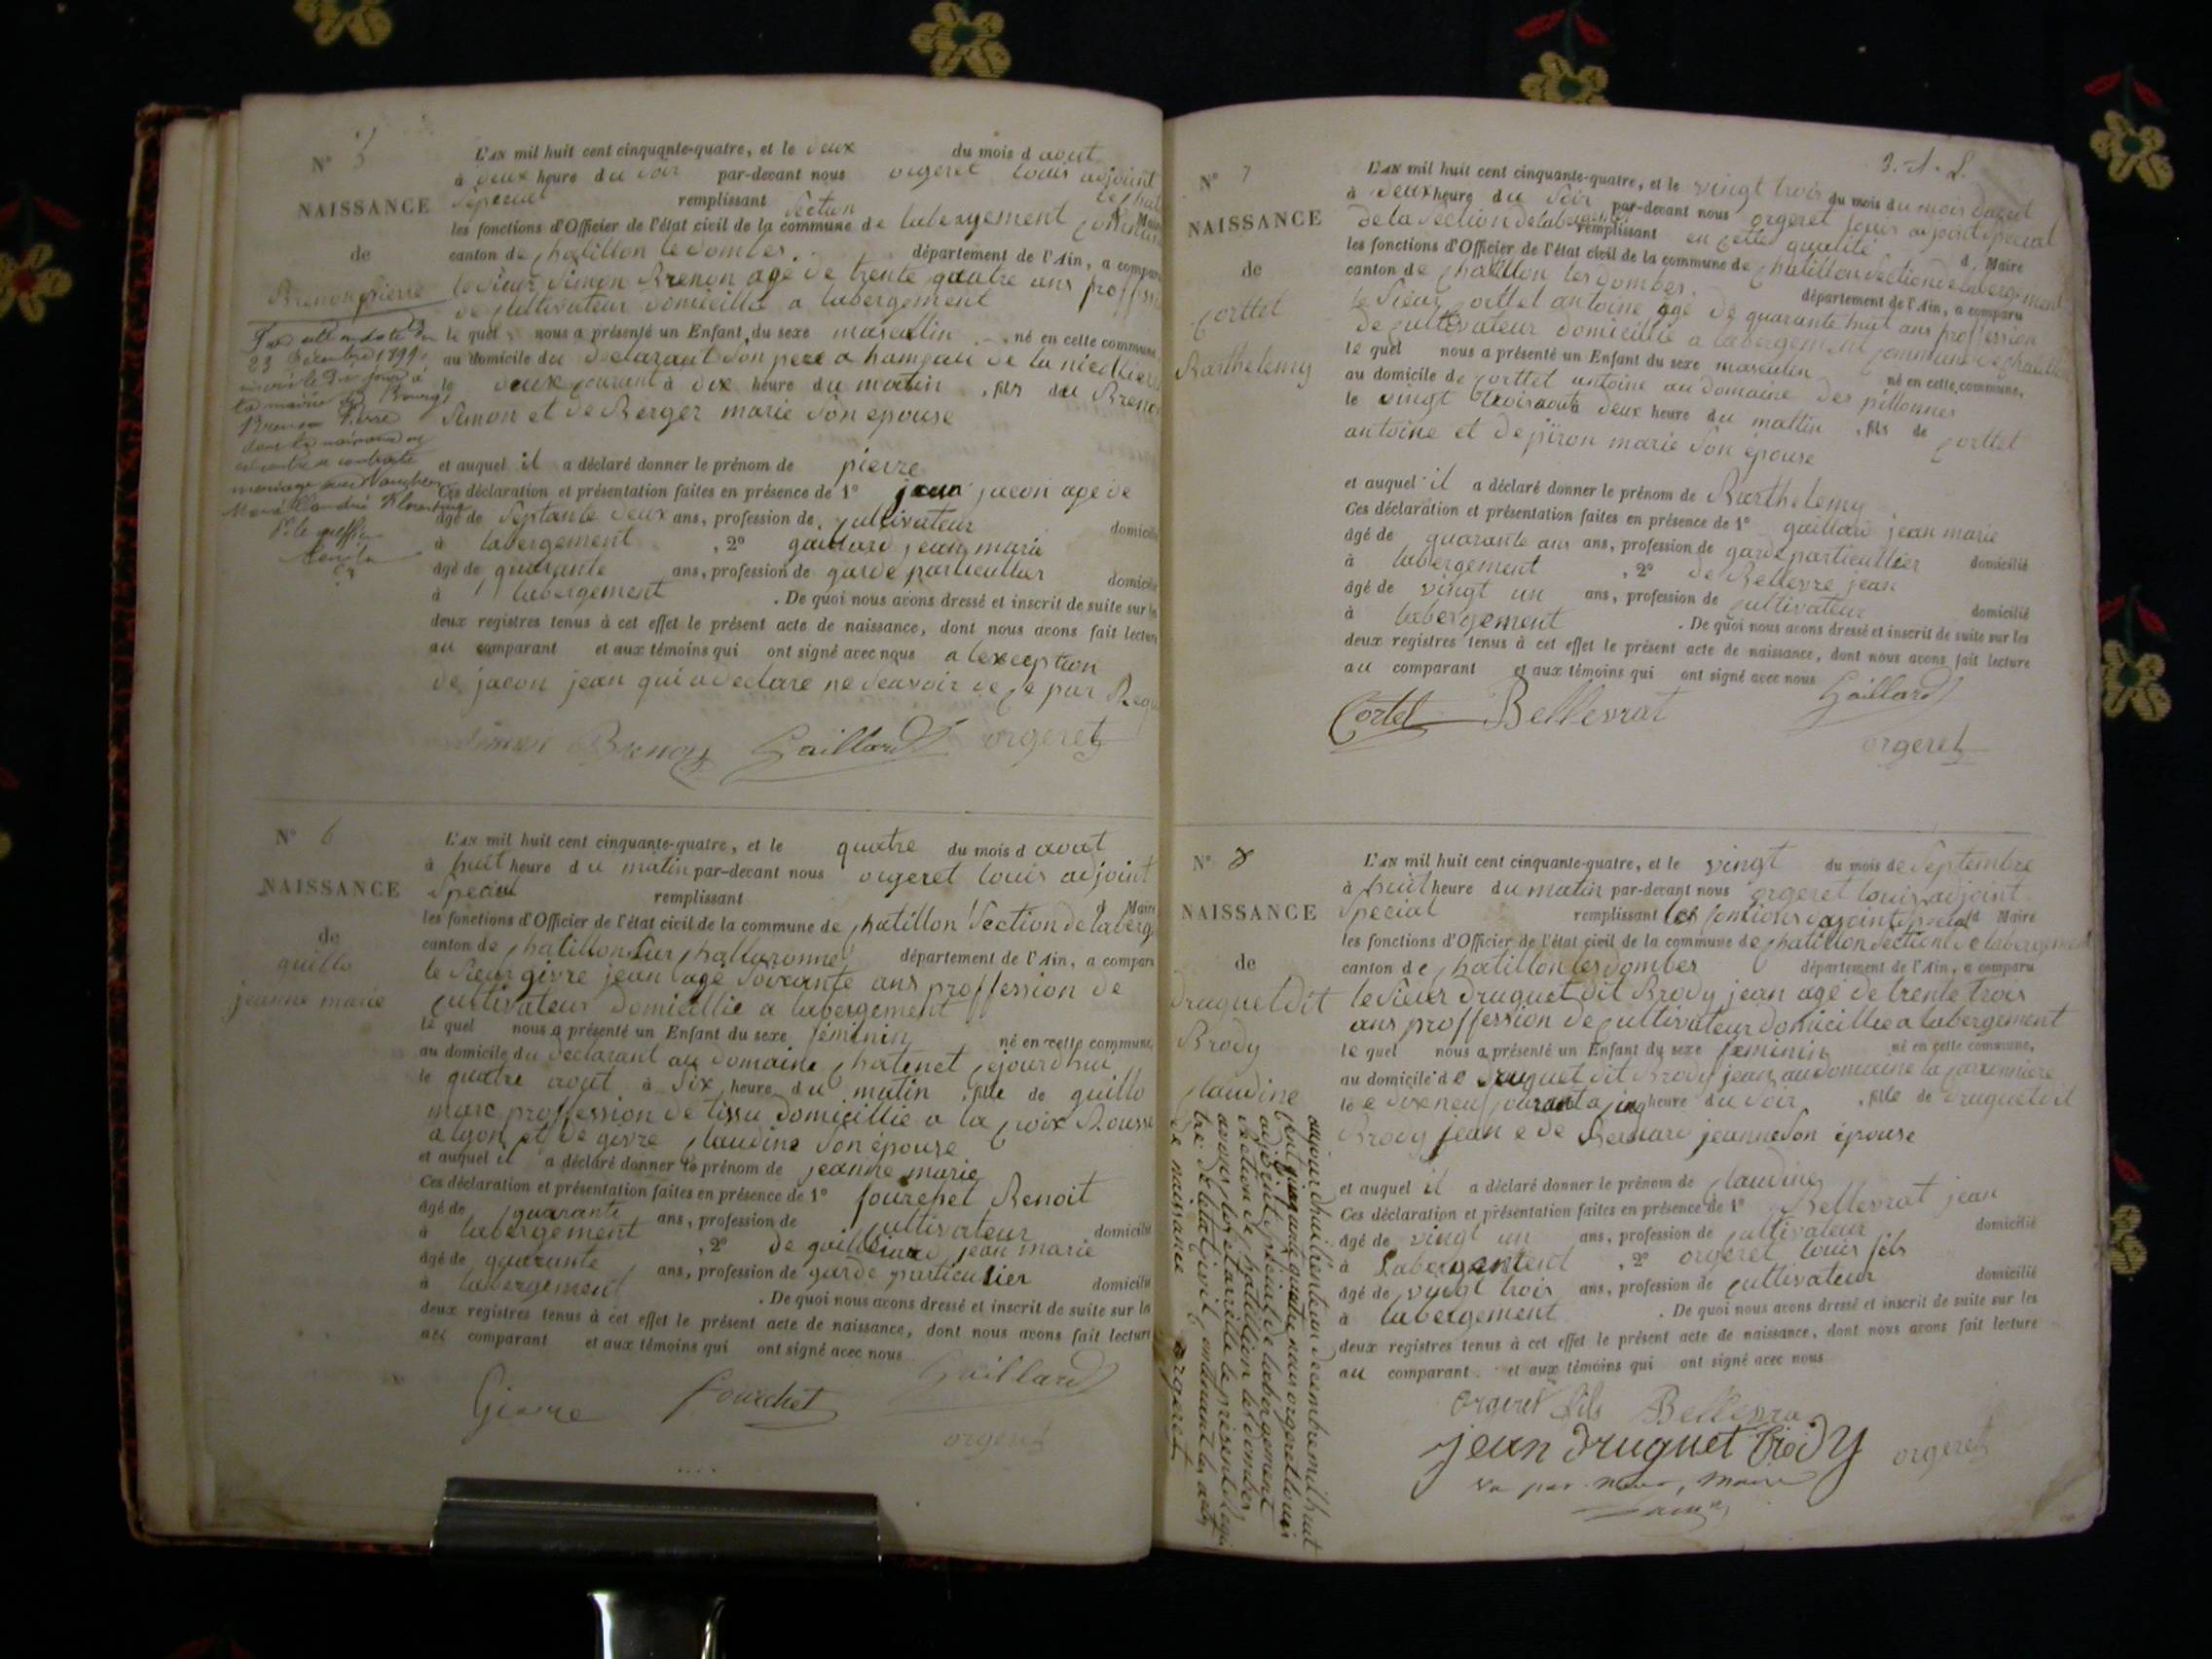 N° 5
NAISSANCE
de
Brenon pierre
23 Décembre 1899
la mairie de Bourg
Pierre
L'AN mil huit cent cinquante-quatre, et le deux du mois d aout
à deux heure du soir par-devant nous orgeret louis adjoint
special remplissant
les fonctions d'Officier de l'état civil de la commune de section labergement
canton de chatillon les dombes. département de l'Ain, a comparu
le sieur Simon Brenon age de trente quatre ans proffession
de cultivateur domicillié a labergement
le quel nous a présenté un Enfant du sexe masculin né en cette commune,
au domicile du declarant son pere a hameau de la
le deux courant à dix heure du matin , fils du Brenon
Simon et de Berger marie son epouse
et auquel il a déclaré donner le prénom de pierre
Ces déclaration et présentation faites en présence de 1° jean jacon age de
âgé de septante deux ans, profession de cultivateur domicilié
à labergement , 2° gaillard jean marie
âgé de quarante ans, profession de garde particullier domicilié
à labergement . De quoi nous avons dressé et inscrit de suite sur les
deux registres tenus à cet effet le présent acte de naissance, dont nous avons fait lecture
au comparant et aux témoins qui ont signé avec nous a lexception
de jacon jean qui a declare ne seavoir de ce par Requi
Simon Brenon Gaillard orgeret
N° 6
NAISSANCE
de
guillo
jeanne marie
L'AN mil huit cent cinquante-quatre, et le quatre du mois d aout
à huit heure du matin par-devant nous orgeret louis adjoint
special remplissant d Maire
les fonctions d'Officier de l'état civil de la commune de chatillon Section de laberg
canton de chatillon sur challaronne département de l'Ain, a comparu
le sieur givre jean agé soixante ans proffession de
cultivateur domicillié a labergement
le quel nous a présenté un Enfant du sexe féminin né en cette commune,
au domicile du declarant au domaine chatenet cejourdhui
le quatre aout à six heure du matin , fille de guillo
marc proffession de tissu domicillié a la croix Rousse
a lyon et de givre claudine son épouse
et auquel il a déclaré donner le prénom de jeanne marie
Ces déclaration et présentation faites en présence de 1° fourchet Benoit
âgé de quarante ans, profession de cultivateur domicilié
à labergement , 2° de gailliard jean marie
âgé de quarante ans, profession de garde particulier domicilié
à labergement . De quoi nous avons dressé et inscrit de suite sur les
deux registres tenus à cet effet le présent acte de naissance, dont nous avons fait lecture
au comparant et aux témoins qui ont signé avec nous
Givre fourchet Gaillard
orgeret
N° 7
NAISSANCE
de
Corttet
Barthelemy
L'AN mil huit cent cinquante-quatre, et le vingt trois du mois du mois daout
à deux heure du soir par-devant nous orgeret louis adjoint special
de la section de labergement remplissant en cette qualité d. Maire
les fonctions d'Officier de l'état civil de la commune de chatillon section de labergement
canton de chatillon les dombes. département de l'Ain, a comparu
le Sieur corttet antoine âgé de quarante huit ans proffession
de cultivateur domicillié a labergement commune de chatillon
le quel nous a présenté un Enfant du sexe masculin né en cette commune,
au domicile de corttet antoine au domaine des pillonnes
le vingt trois aout à deux heure du mattin , fils de corttet
antoine et de piron marie son épouse
et auquel il a déclaré donner le prénom de Barthelemy
Ces déclaration et présentation faites en présence de 1° gaillard jean marie
âgé de quarante ans ans, profession de garde particullier domicilié
à labergement , 2° de Bellevre jean
âgé de vingt un ans, profession de cultivateur domicilié
à labergement . De quoi nous avons dressé et inscrit de suite sur les
deux registres tenus à cet effet le présent acte de naissance, dont nous avons fait lecture
au comparant et aux témoins qui ont signé avec nous
Cortet Bellevrat Gaillard
orgeret
N° 8
NAISSANCE
de
Druguet dit
Brody
claudine
L'AN mil huit cent cinquante-quatre, et le vingt du mois de Septembre
à huit heure du matin par-devant nous orgeret louis adjoint
special remplissant les fontions dajoint special d Maire
les fonctions d'Officier de l'état civil de la commune de chatillon section de labergement
canton de chatillon les dombes département de l'Ain, a comparu
le sieur Druguet dit Brody jean agé de trente trois
ans proffession de cultivateur domicillié a labergement
le quel nous a présenté un Enfant du sexe feminin né en cette commune,
au domicile de druguet dit Brody jean au domaine la
le dixneuf courant a cinq heure du soir , fille de Druguet dit
Brody jean e de Bernard jeanne son épouse
et auquel il a déclaré donner le prénom de claudine
Ces déclaration et présentation faites en présence de 1° Bellevrat jean
âgé de vingt un ans, profession de cultivateur domicilié
à Labergement , 2° orgeret louis fils
âgé de vingt trois ans, profession de cultivateur domicilié
à labergement . De quoi nous avons dressé et inscrit de suite sur les
deux registres tenus à cet effet le présent acte de naissance, dont nous avons fait lecture
au comparant et aux témoins qui ont signé avec nous
Orgeret fils Bellevra
jean druguet Brody orgeret
vu par nous, maire
aujourdhui trente un decembre mil huit
cent cinquante quatre nous orgeret louis
adjoint special de labergement
section de chatillion les dombes
avons clos et arrette le présent Regis
tre de letat civil contenant les actes
de naissance orgeret